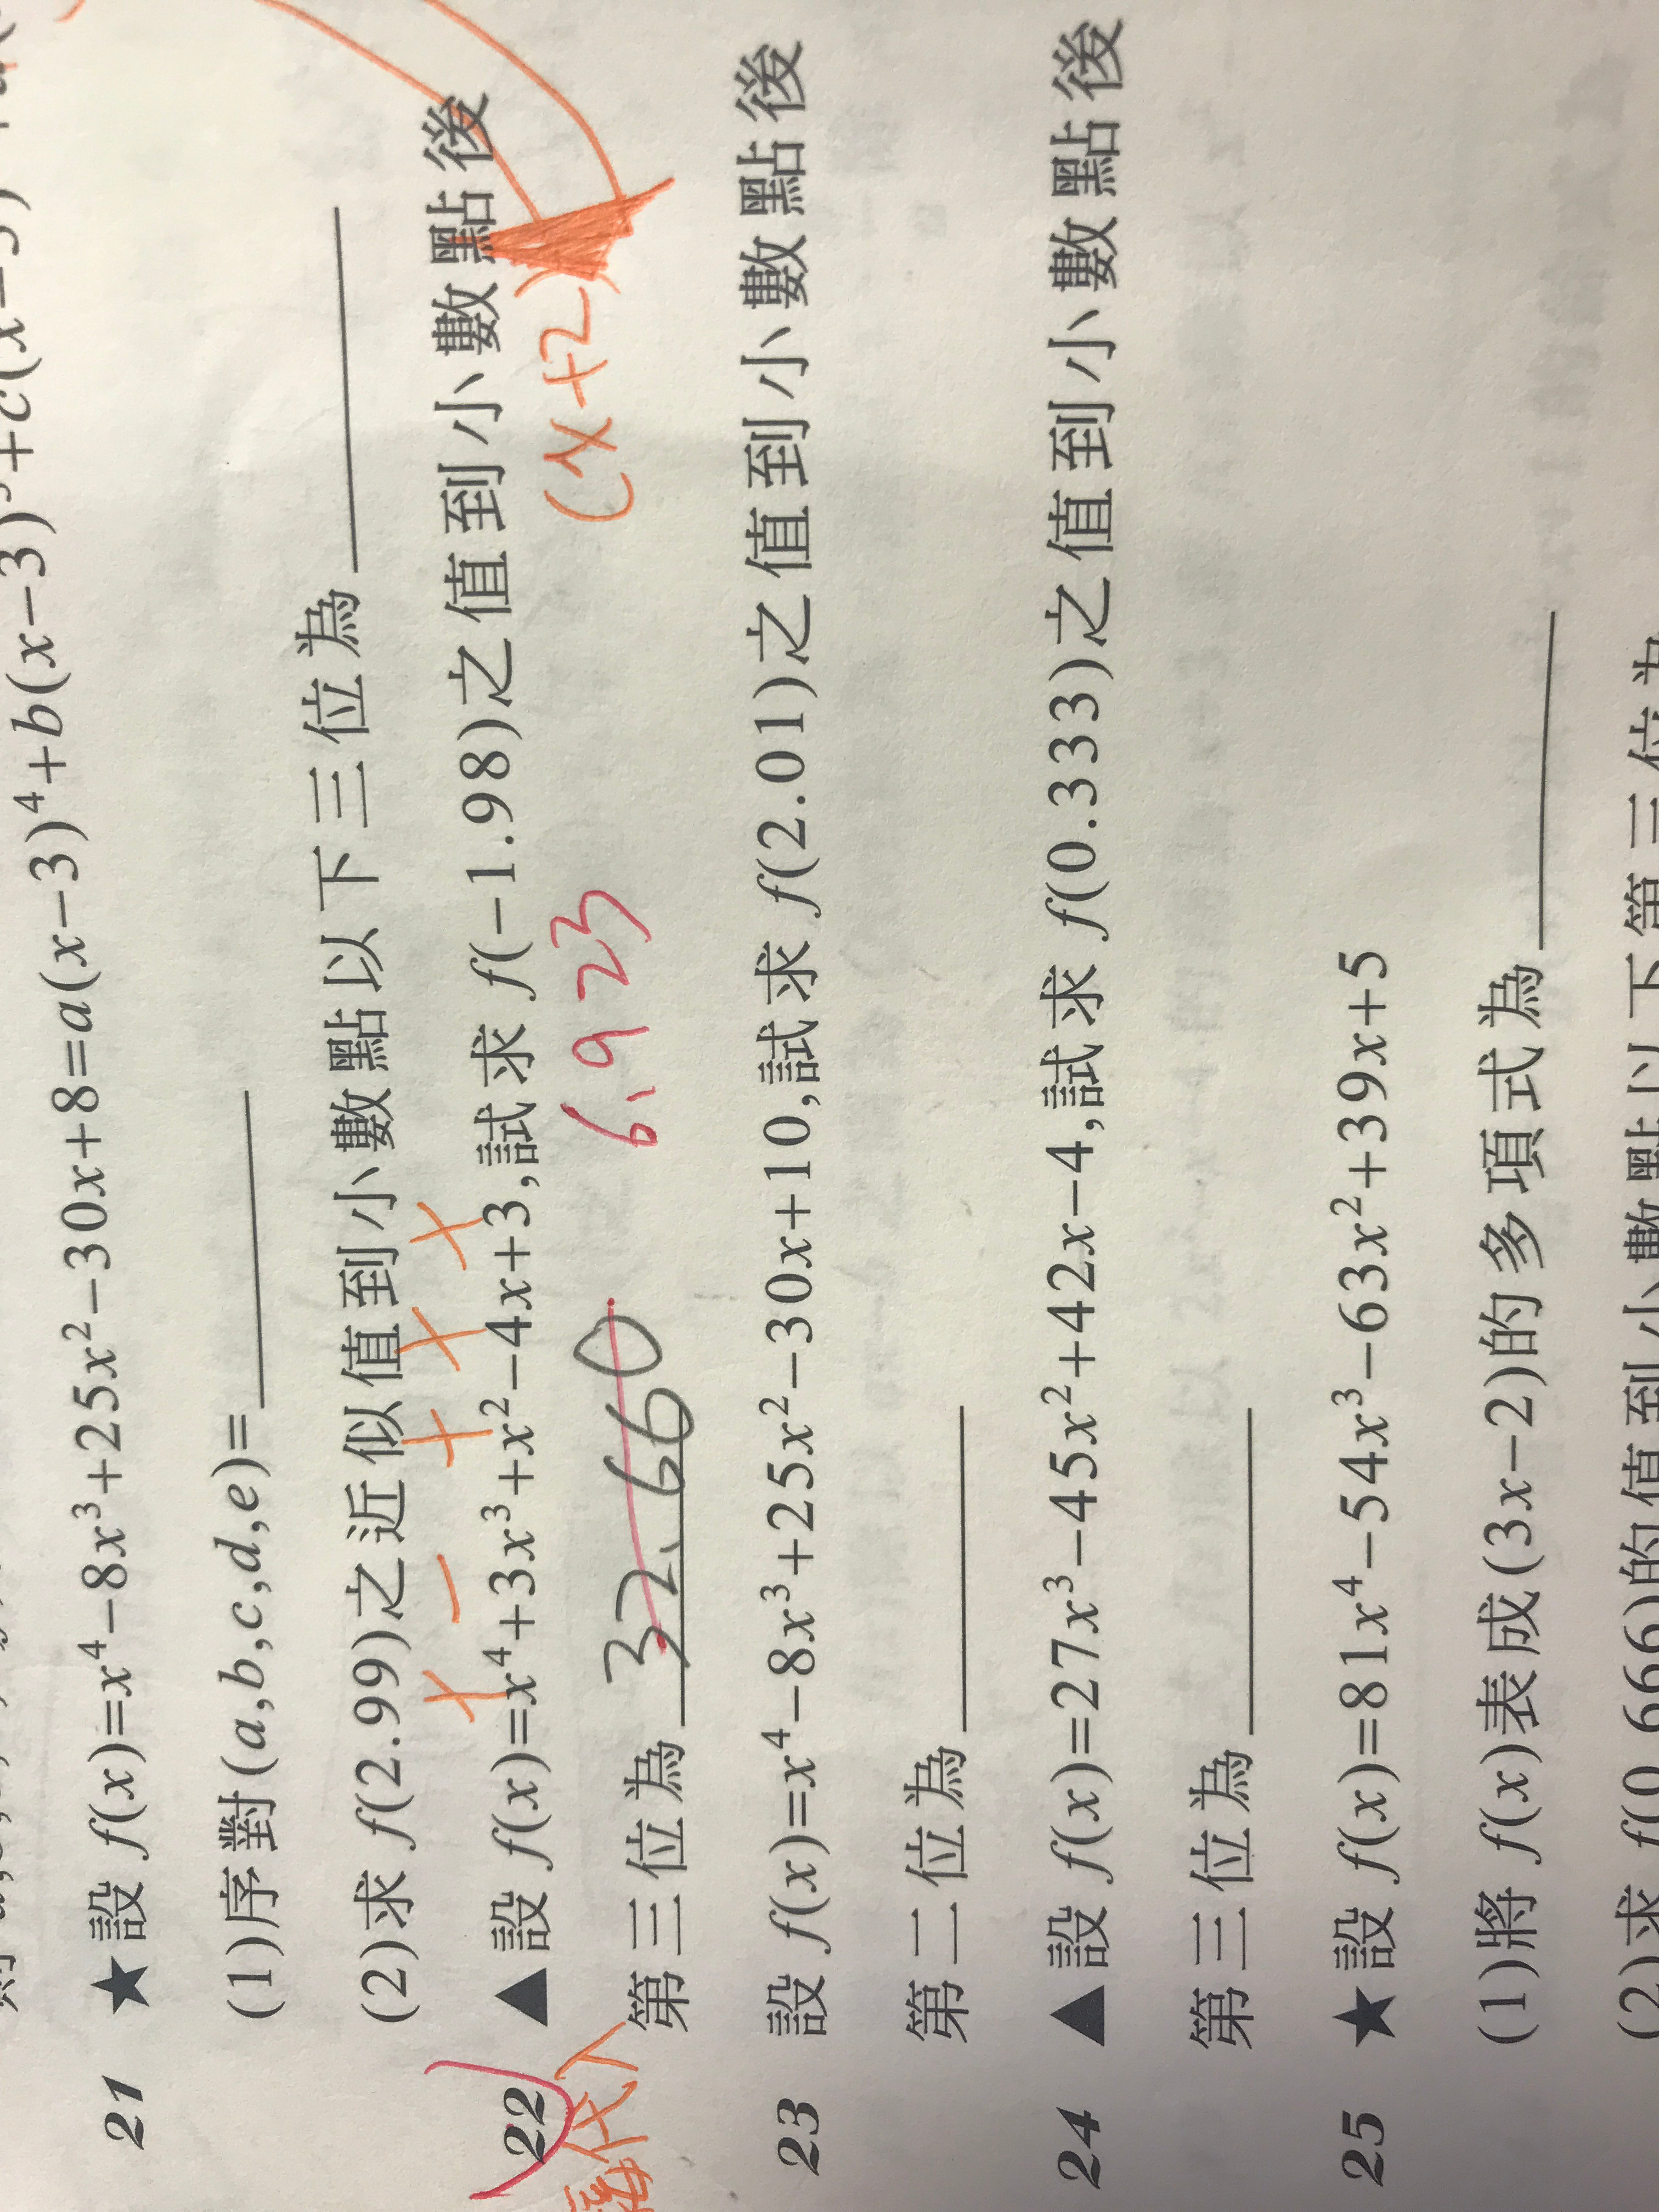 21 ★設 f(x)=x⁴−8x³+25x²−30x+8=a(x−3)⁴+b(x−3)³+c(x−3)
(1)序對(a,b,c,d,e)=________
(2)求 f(2.99)之近似值到小數點以下三位為________
22 ▲設 f(x)=x⁴+3x³+x²−4x+3,試求 f(−1.98)之值到小數點後
第三位為 32.660 6.923 (x+2)
代入
23 設 f(x)=x⁴−8x³+25x²−30x+10,試求 f(2.01)之值到小數點後
第二位為________
24 ▲設 f(x)=27x³−45x²+42x−4,試求 f(0.333)之值到小數點後
第三位為________
25 ★設 f(x)=81x⁴−54x³−63x²+39x+5
(1)將 f(x)表成(3x−2)的多項式為________
(2)求 f(0.666)的值到小數點以下第三位為